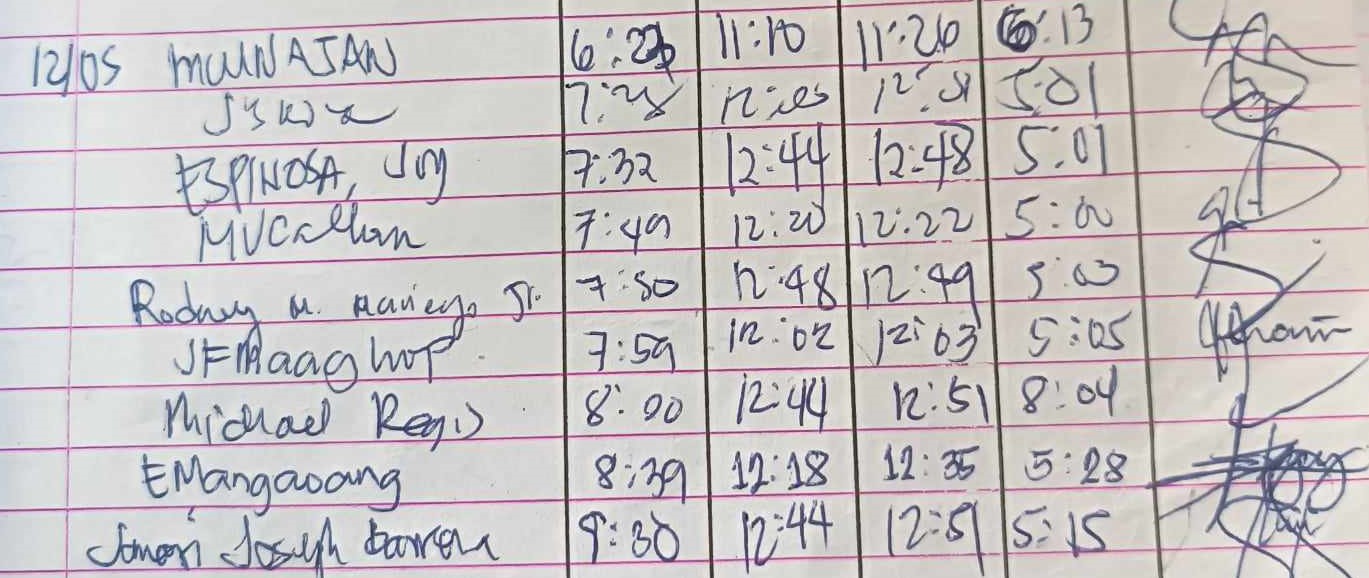 12/05 MUNAJAN 6:23 11:10 11:26 6:13
7:28 12:05 12:51 5:01
ESPINOSA, Joy 7:32 12:44 12:48 5:01
MVCallan 7:49 12:20 12:22 5:00
Rodney M. Maniego Jr. 7:50 12:48 12:49 5:03
JFMaaghop 7:59 12:02 12:03 5:05
Michael Regis 8:00 12:44 12:51 8:04
EMangaoang 8:39 12:18 12:35 5:28
Joseph 9:30 12:44 12:51 5:15